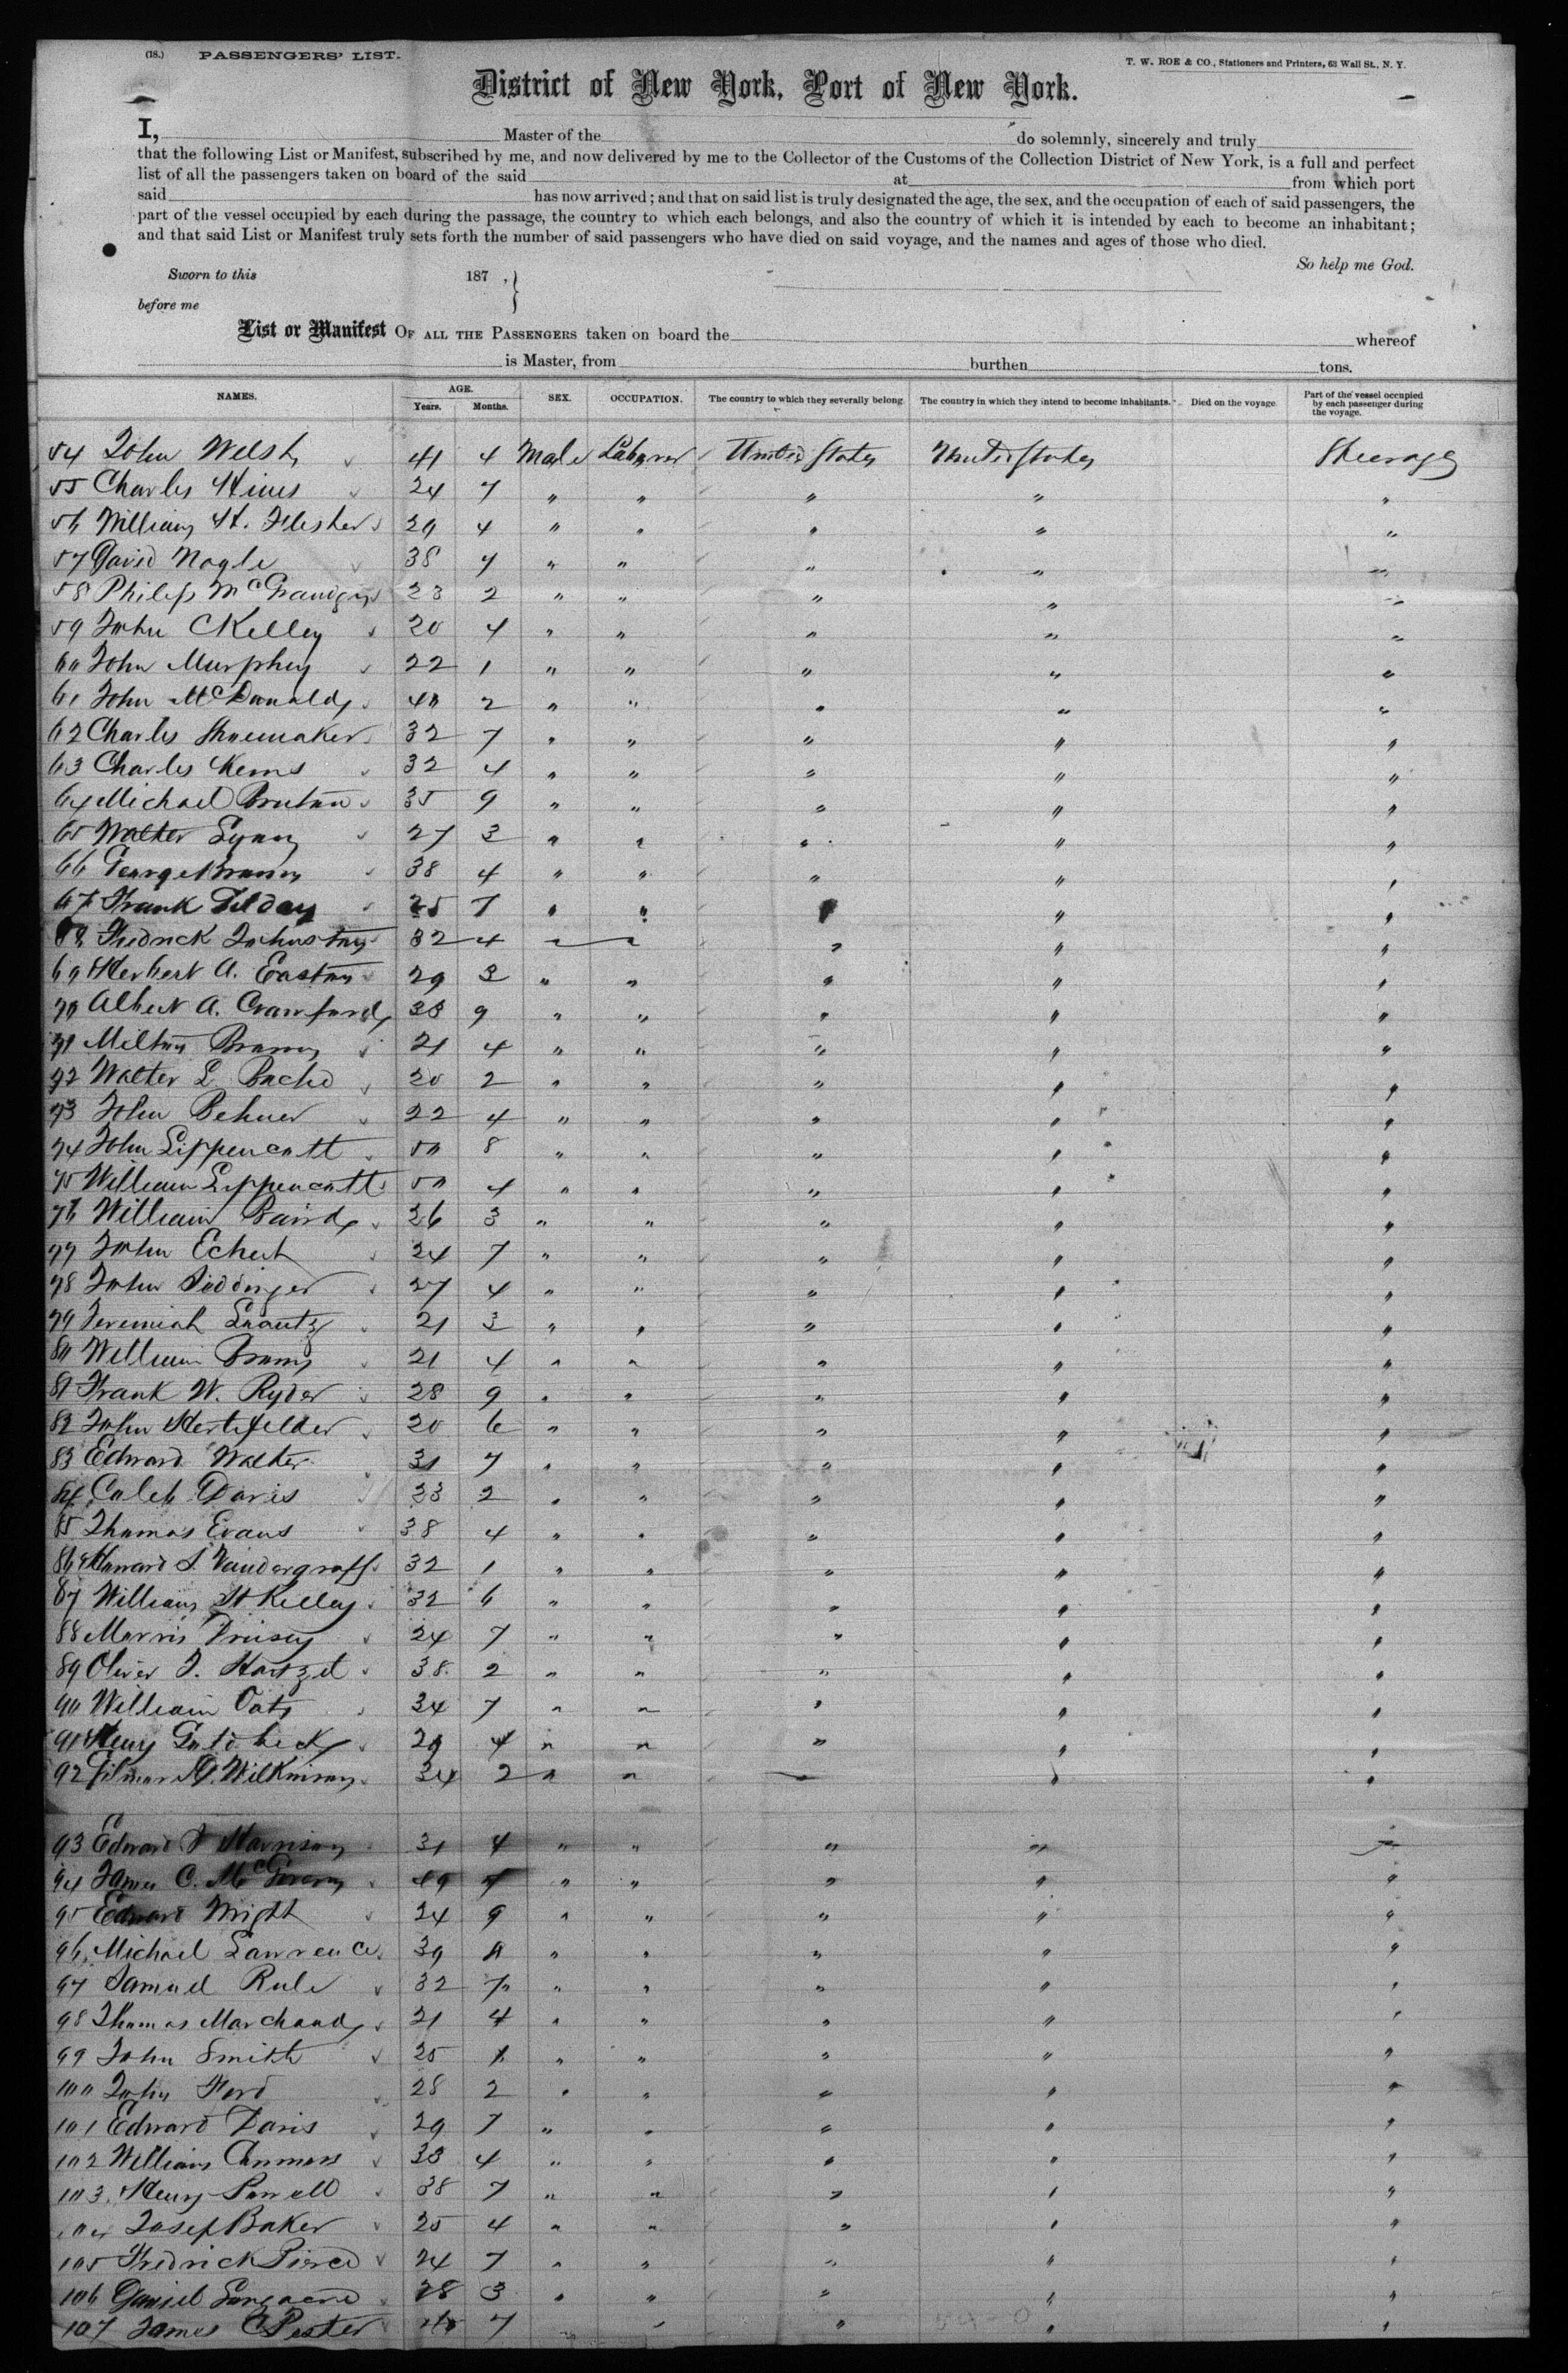 (18.) PASSENGERS' LIST.
T. W. ROE & CO., Stationers and Printers, 63 Wall St., N. Y.
District of New York, Port of New York.
I, Master of the do solemnly, sincerely and truly
that the following List or Manifest, subscribed by me, and now delivered by me to the Collector of the Customs of the Collection District of New York, is a full and perfect
list of all the passengers taken on board of the said at from which port
said has now arrived; and that on said list is truly designated the age, the sex, and the occupation of each of said passengers, the
part of the vessel occupied by each during the passage, the country to which each belongs, and also the country of which it is intended by each to become an inhabitant;
and that said List or Manifest truly sets forth the number of said passengers who have died on said voyage, and the names and ages of those who died.
So help me God.
Sworn to this 187 ,
before me
List or Manifest OF ALL THE PASSENGERS taken on board the whereof
is Master, from burthen tons.
NAMES. AGE. Years. Months. SEX. OCCUPATION. The country to which they severally belong. The country in which they intend to become inhabitants. Died on the voyage. Part of the vessel occupied by each passenger during the voyage.
54 John Welsh 41 4 Male Laborer United States United States Steerage
55 Charles Hines 24 7 " " " " "
56 William H. 29 4 " " " " "
57 David Nagle 38 7 " " " " "
58 Philip 23 2 " " " " "
59 John Kelley 20 4 " " " " "
60 John Murphey 22 1 " " " " "
61 John McDonald 40 2 " " " " "
62 Charles Shoemaker 32 7 " " " " "
63 Charles Kerns 32 4 " " " " "
64 Michael Bruton 35 9 " " " " "
65 Walter 27 3 " " " " "
66 George Brown 38 4 " " " " "
67 Frank 25 7 " " " " "
68 Fredrick Johnston 32 4 " " " " "
69 Herbert A. Easton 29 3 " " " " "
70 Albert A. Crawford 33 9 " " " " "
71 Milton Brown 21 4 " " " " "
72 Walter L 20 2 " " " " "
73 John Behner 22 4 " " " " "
74 John Lippencott 50 8 " " " " "
75 William Lippencott 50 4 " " " " "
76 William Baird 26 3 " " " " "
77 John Echert 24 7 " " " " "
78 John 27 4 " " " " "
79 Jeremiah 21 3 " " " " "
80 William Brown 21 4 " " " " "
81 Frank W. Ryder 28 9 " " " " "
82 John Hertfelder 20 6 " " " " "
83 Edward Walter 31 7 " " " " "
84 Caleb Davis 33 2 " " " " "
85 Thomas Evans 38 4 " " " " "
86 Howard S. Vandergraff 32 1 " " " " "
87 William H Kelley 32 6 " " " " "
88 Morris 24 7 " " " " "
89 Oliver J. Hartzel 38 2 " " " " "
90 William Oats 34 7 " " " " "
91 Henry 29 4 " " " " "
92 Wilkinson 34 2 " " " " "
93 Edward Harrison 31 4 " " " " "
94 James C. 49 4 " " " " "
95 Edward Wright 24 9 " " " " "
96 Michael Lawrence 39 " " " " "
97 Samuel Rule 32 7 " " " " "
98 Thomas Marchand 21 4 " " " " "
99 John Smith 25 1 " " " " "
100 John Ford 28 2 " " " " "
101 Edward Davis 29 7 " " " " "
102 William 33 4 " " " " "
103 Henry Powell 38 7 " " " " "
104 Josef Baker 25 4 " " " " "
105 Fredrick Pierce 24 7 " " " " "
106 Daniel Longacre 28 3 " " " " "
107 James 7 " " " " "